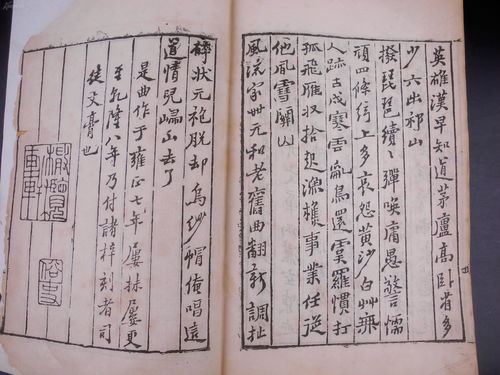 英雄漢早知道茅廬高臥省多
少六出祁山
撥琵琶續〻彈喚庸愚警懦
頑四條絃上多哀怨黃沙白艸無
人跡古戍寒雲亂鳥還虞羅慣打
孤飛雁収拾起漁樵事業任從
他風雪關山
風流家世元和老舊曲翻新調扯
碎狀元袍脫却烏紗帽俺唱這
道情兒歸山去了
是曲作于雍正七年屢抹屢更
至乾隆八年乃付諸梓刻者司
徒文膏也
橄欖軒
俗吏